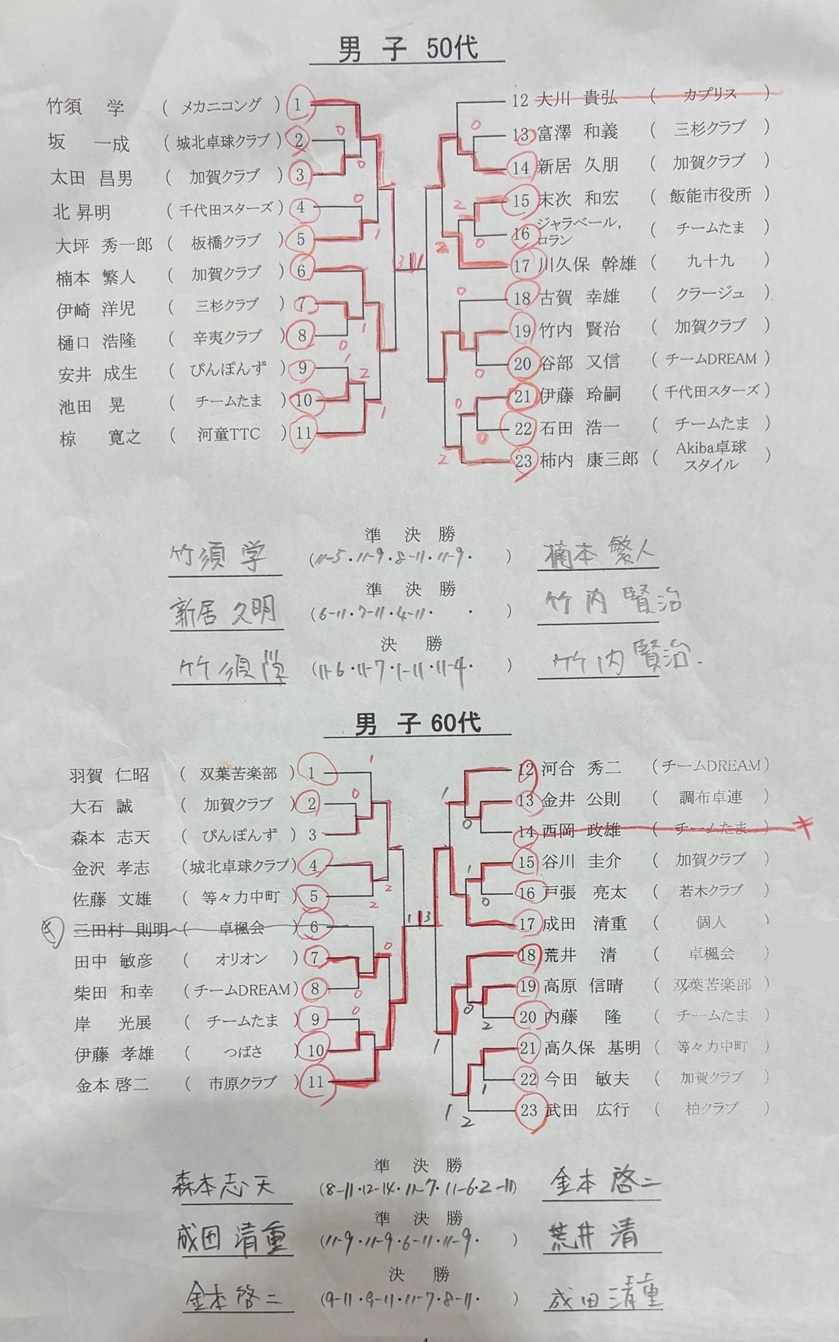 男 子 50代
竹須 学 ( メカニコング ) 1
坂 一成 ( 城北卓球クラブ ) 2
太田 昌男 ( 加賀クラブ ) 3
北 昇明 ( 千代田スターズ ) 4
大坪 秀一郎 ( 板橋クラブ ) 5
楠本 繁人 ( 加賀クラブ ) 6
伊崎 洋児 ( 三杉クラブ ) 7
樋口 浩隆 ( 辛夷クラブ ) 8
安井 成生 ( ぴんぽんず ) 9
池田 晃 ( チームたま ) 10
椋 寛之 ( 河童TTC ) 11
12 大川 貴弘 ( カプリス )
13 富澤 和義 ( 三杉クラブ )
14 新居 久朋 ( 加賀クラブ )
15 末次 和宏 ( 飯能市役所 )
16 ジャラベール, ロラン ( チームたま )
17 川久保 幹雄 ( 九十九 )
18 古賀 幸雄 ( クラージュ )
19 竹内 賢治 ( 加賀クラブ )
20 谷部 又信 ( チームDREAM )
21 伊藤 玲嗣 ( 千代田スターズ )
22 石田 浩一 ( チームたま )
23 柿内 康三郎 ( Akiba卓球スタイル )
準 決 勝
竹須 学 (11-5・11-9・8-11・11-9・ )楠本 繁人
準 決 勝
新居 久明 (6-11・7-11・4-11・ ・ ) 竹内 賢治
決 勝
竹須 学 (11-6・11-7・1-11・11-4・ ) 竹内 賢治.
男 子 60代
羽賀 仁昭 ( 双葉苦楽部 ) 1
大石 誠 ( 加賀クラブ ) 2
森本 志天 ( ぴんぽんず ) 3
金沢 孝志 ( 城北卓球クラブ ) 4
佐藤 文雄 ( 等々力中町 ) 5
キ 三田村 則明 ( 卓楓会 ) 6
田中 敏彦 ( オリオン ) 7
柴田 和幸 ( チームDREAM ) 8
岸 光展 ( チームたま ) 9
伊藤 孝雄 ( つばさ ) 10
金本 啓二 ( 市原クラブ ) 11
12 河合 秀二 ( チームDREAM )
13 金井 公則 ( 調布卓連 )
14 西岡 政雄 ( チームたま ) キ
15 谷川 圭介 ( 加賀クラブ )
16 戸張 亮太 ( 若木クラブ )
17 成田 清重 ( 個人 )
18 荒井 清 ( 卓楓会 )
19 高原 信晴 ( 双葉苦楽部 )
20 内藤 隆 ( チームたま )
21 高久保 基明 ( 等々力中町 )
22 今田 敏夫 ( 加賀クラブ )
23 武田 広行 ( 柏クラブ )
準 決 勝
森本志天 (8-11・12-14・11-7・11-6・2-11) 金本 啓二
準 決 勝
成田 清重 (11-9・11-9・6-11・11-9・ ) 荒井 清
決 勝
金本 啓二 (9-11・9-11・11-7・8-11・ ) 成田 清重